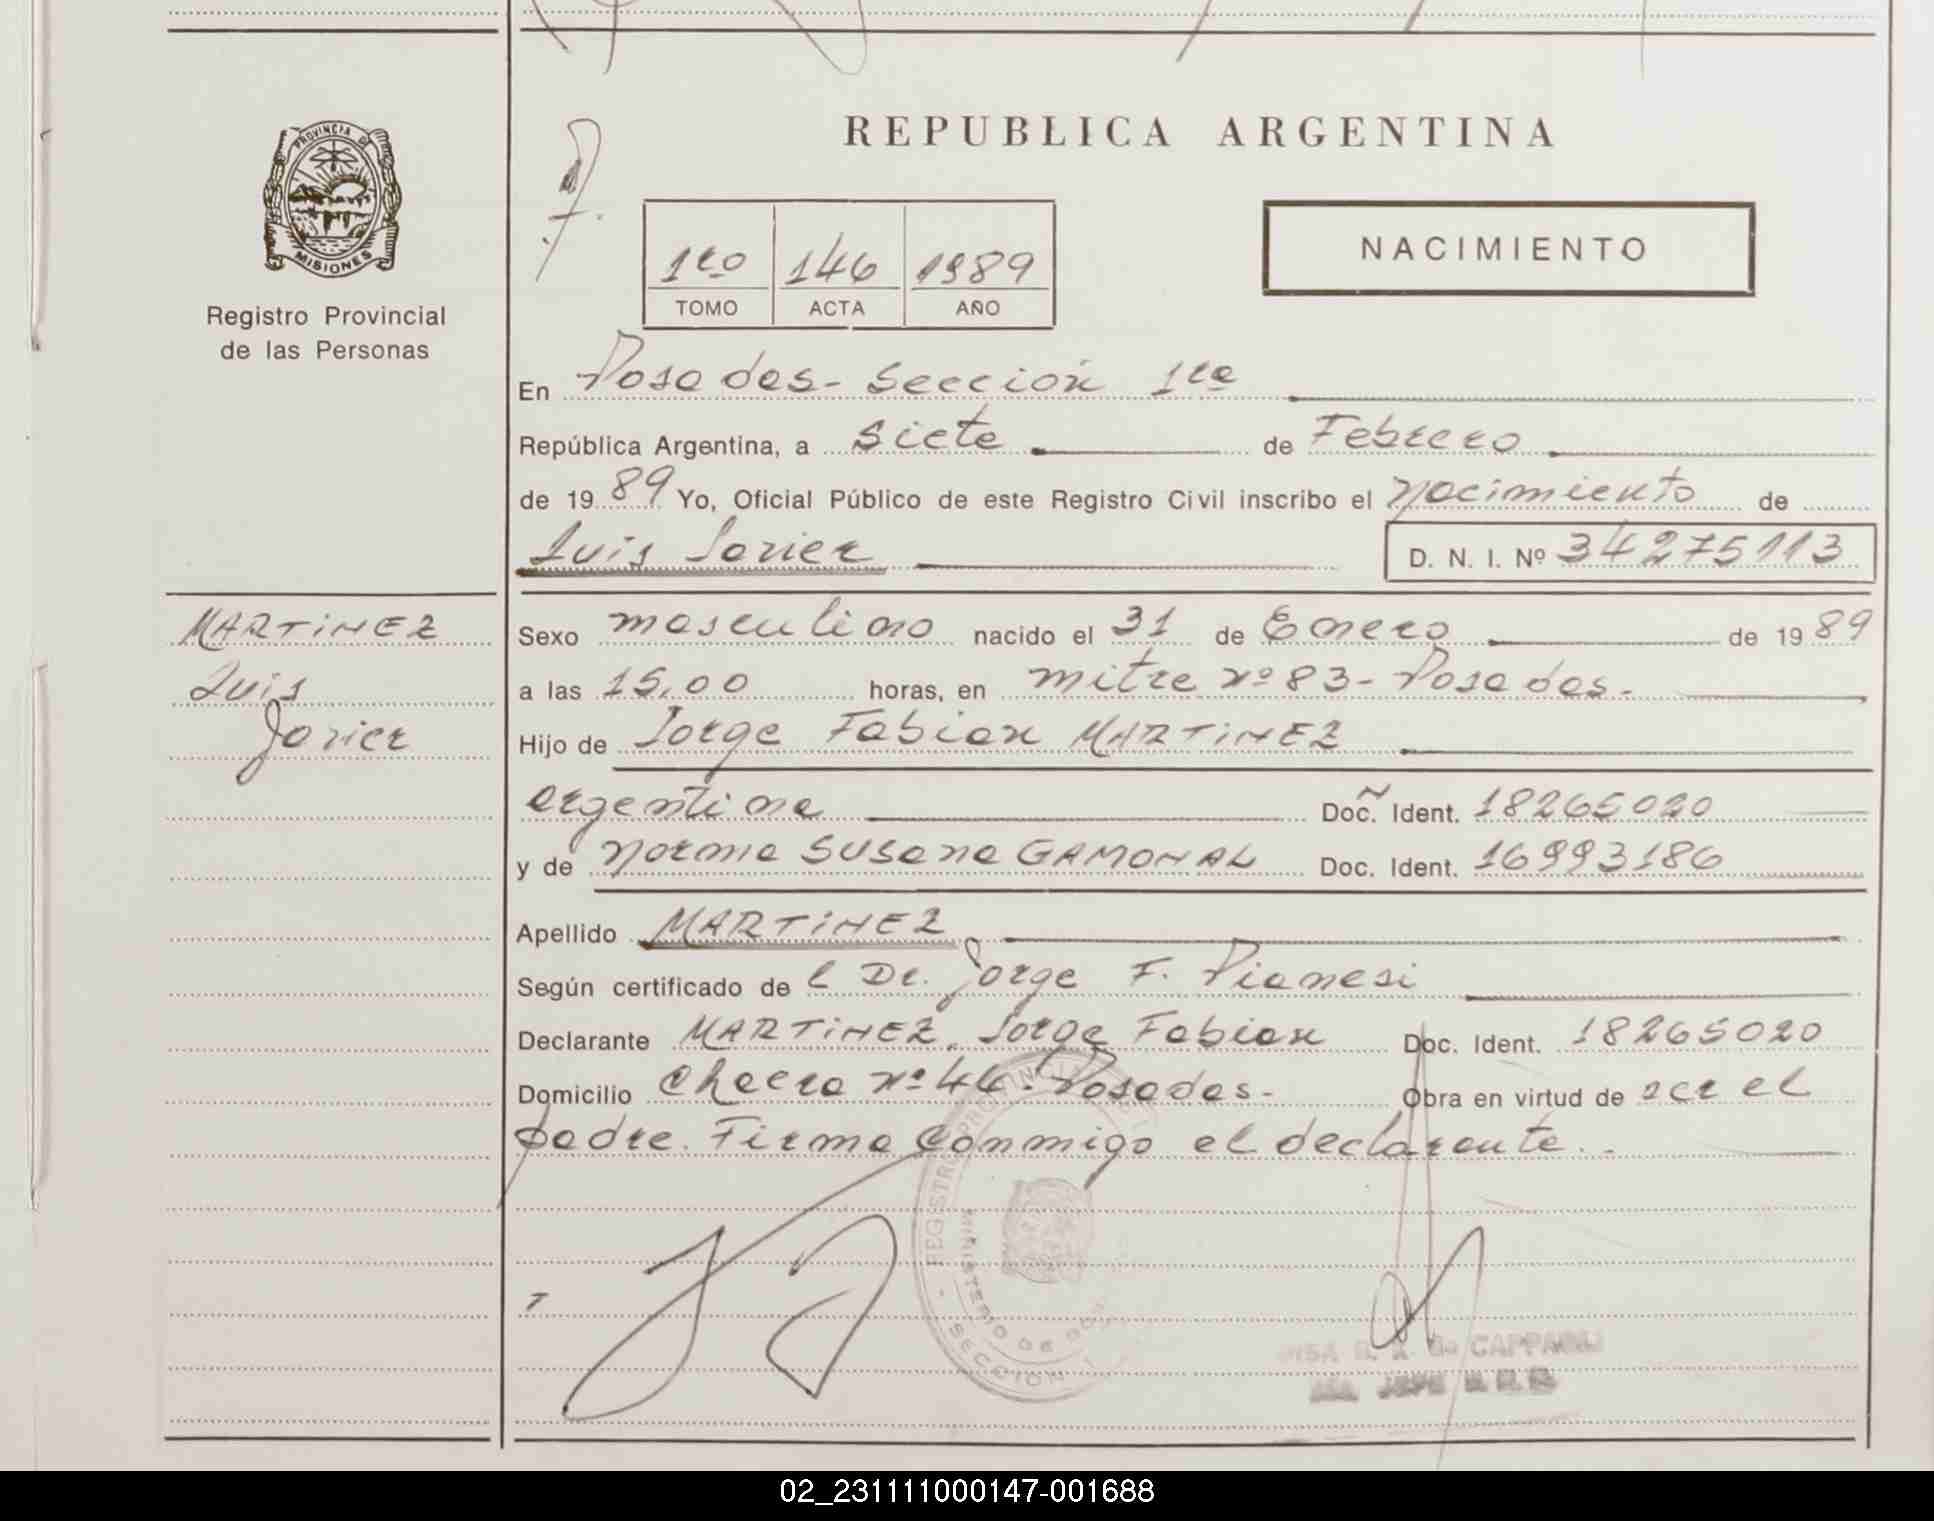 PROVINCIA DE
MISIONES
Registro Provincial
de las Personas
REPUBLICA ARGENTINA
1ro 146 1989
TOMO ACTA AÑO
NACIMIENTO
En Posadas- Sección 1ra
República Argentina, a siete de Febrero
de 1989 Yo, Oficial Público de este Registro Civil inscribo el nacimiento de
Luis Javier D. N. I. Nº 34275113
MARTINEZ
Luis
Javier
Sexo masculino nacido el 31 de Enero de 1989
a las 15,00 horas, en mitre nº 83- Posadas-
Hijo de Jorge Fabian MARTINEZ
argentina Doc. Ident. 18265020
y de Norma Susana GAMONAL Doc. Ident. 16993186
Apellido MARTINEZ
Según certificado del Dr. Jorge F. Pianesi
Declarante MARTINEZ, Jorge Fabian Doc. Ident. 18265020
Domicilio Chacra nº 46- Posadas- Obra en virtud de ser el
padre. Firma conmigo el declarante.-
REGISTRO PROVINCIAL
MINISTERIO DE
SECCION 1
02_231111000147-001688